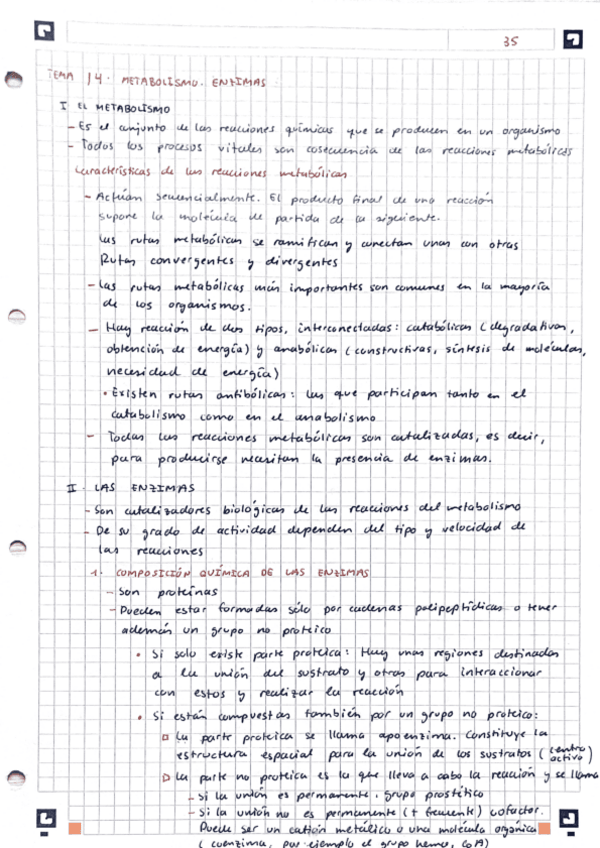 35
TEMA 14. METABOLISMO. ENZIMAS
I EL METABOLISMO
- Es el conjunto de las reacciones químicas que se producen en un organismo
- Todos los procesos vitales son cosecuencia de las reacciones metabólicas
Características de las reacciones metabólicas
- Actúan secuencialmente. El producto final de una reacción
supone la molécula de partida de la siguiente.
Las rutas metabólicas se ramifican y conectan unas con otras
Rutas convergentes y divergentes
- Las rutas metabólicas más importantes son comunes en la mayoría
de los organismos.
- Hay reacción de dos tipos, interconectadas: catabólicas (degradativas,
obtención de energía) y anabólicas (constructivas, síntesis de moléculas,
necesidad de energía)
• Existen rutas antibólicas: las que participan tanto en el
catabolismo como en el anabolismo
- Todas las reacciones metabólicas son catalizadas, es decir,
para producirse necesitan la presencia de enzimas.
II. LAS ENZIMAS
- Son catalizadores biológicas de las reacciones del metabolismo
- De su grado de actividad dependen del tipo y velocidad de
las reacciones
1. COMPOSICIÓN QUÍMICA DE LAS ENZIMAS
- Son proteínas
- Pueden estar formadas sólo por cadenas polipeptídicas o tener
además un grupo no proteico
• Si solo existe parte proteica: Hay unas regiones destinadas
a la unión del sustrato y otras para interaccionar
con estos y realizar la reacción
• Si están compuestas también por un grupo no proteico:
□ La parte proteica se llama apoenzima. Constituye la
estructura espacial para la unión de los sustratos (centro activo)
□ La parte no proteica es la que lleva a cabo la reacción y se llama
- Si la unión es permanente, grupo prostético
- Si la unión no es permanente (+ frecuente) cofactor.
Puede ser un catión metálico o una molécula orgánica
(coenzima, por ejemplo el grupo hemo, CoA)